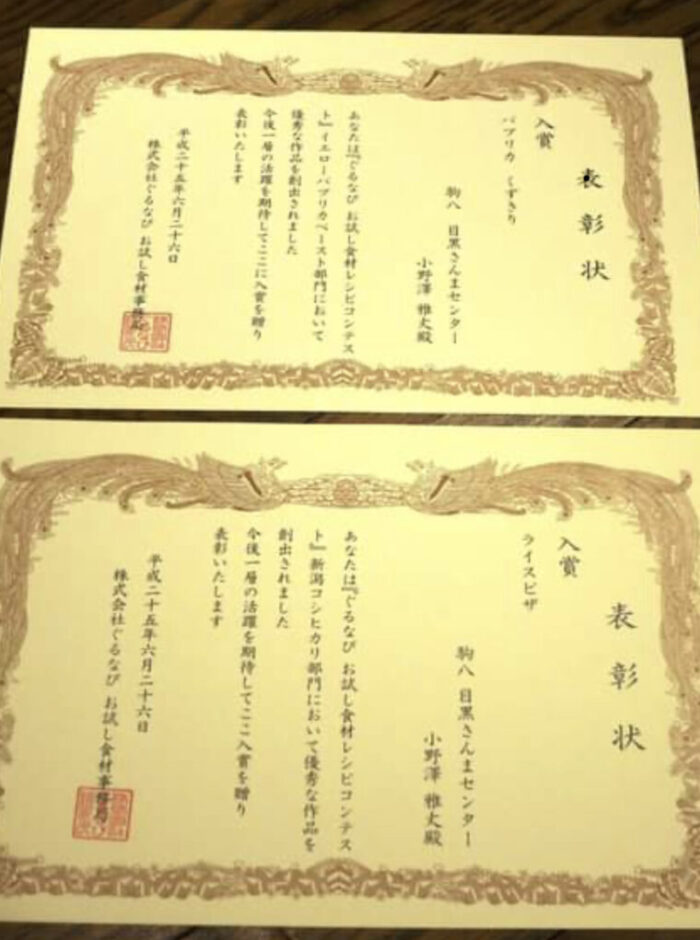 表彰状
入賞
パプリカ くずきり
駒八 目黒さんまセンター
小野澤 雅丈殿
あなたは『ぐるなび お試し食材レシピコンテス
ト』イエローパプリカペースト部門において
優秀な作品を創出されました
今後一層の活躍を期待してここに入賞を贈り
表彰いたします
平成二十五年六月二十六日
株式会社ぐるなび お試し食材事務局
表彰状
入賞
ライスピザ
駒八 目黒さんまセンター
小野澤 雅丈殿
あなたは『ぐるなび お試し食材レシピコンテス
ト』新潟コシヒカリ部門において優秀な作品を
創出されました
今後一層の活躍を期待してここ入賞を贈り
表彰いたします
平成二十五年六月二十六日
株式会社ぐるなび お試し食材事務局